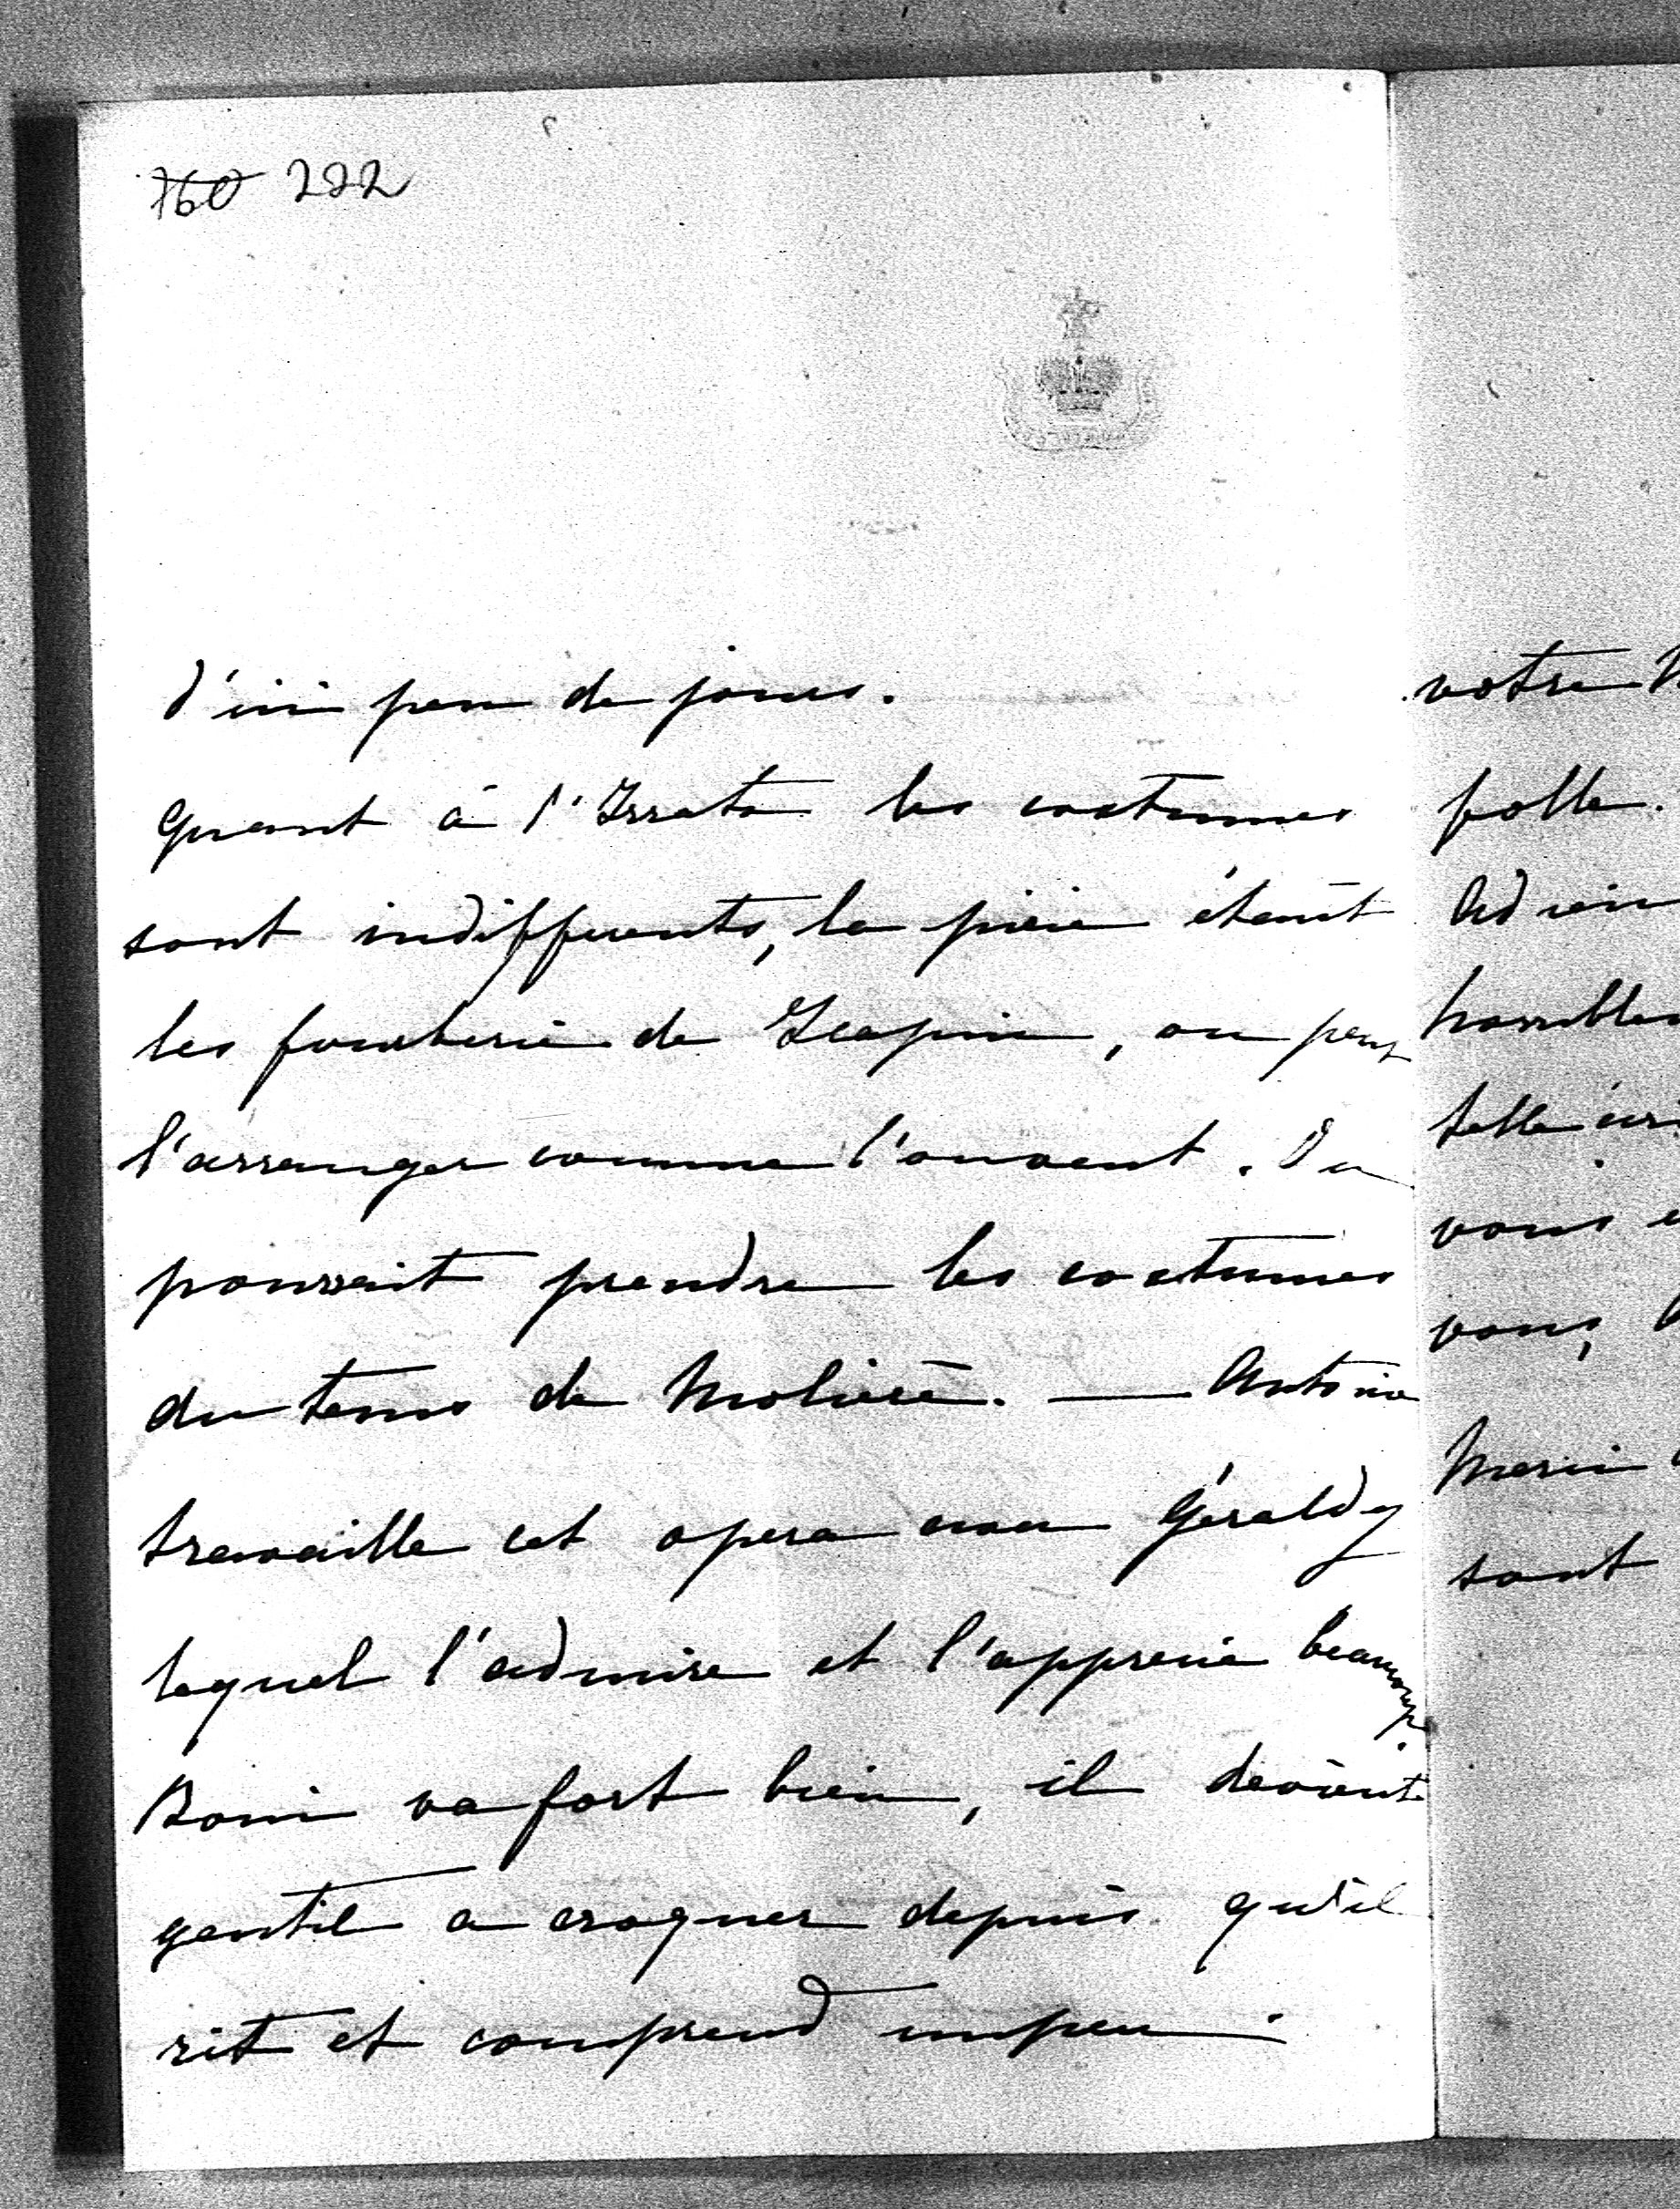 760 222
d'ici peu de jours.
Quant à l'Irrato les costumes
sont indifferents, la pièce étant
les fourberie de Scapin, on peut
l'arranger comme l'on veut. On
pourrait prendre les costumes
du tems de Molière. — Antoine
travaille cet opera avec Géraldy
lequel l'admire et l'apprecie beaucoup.
Boni va fort bien, il devient
gentil a croquer depuis qu'il
rit et comprend un peu.
votre
folle.
horrible
telle
vous
vous,
sont